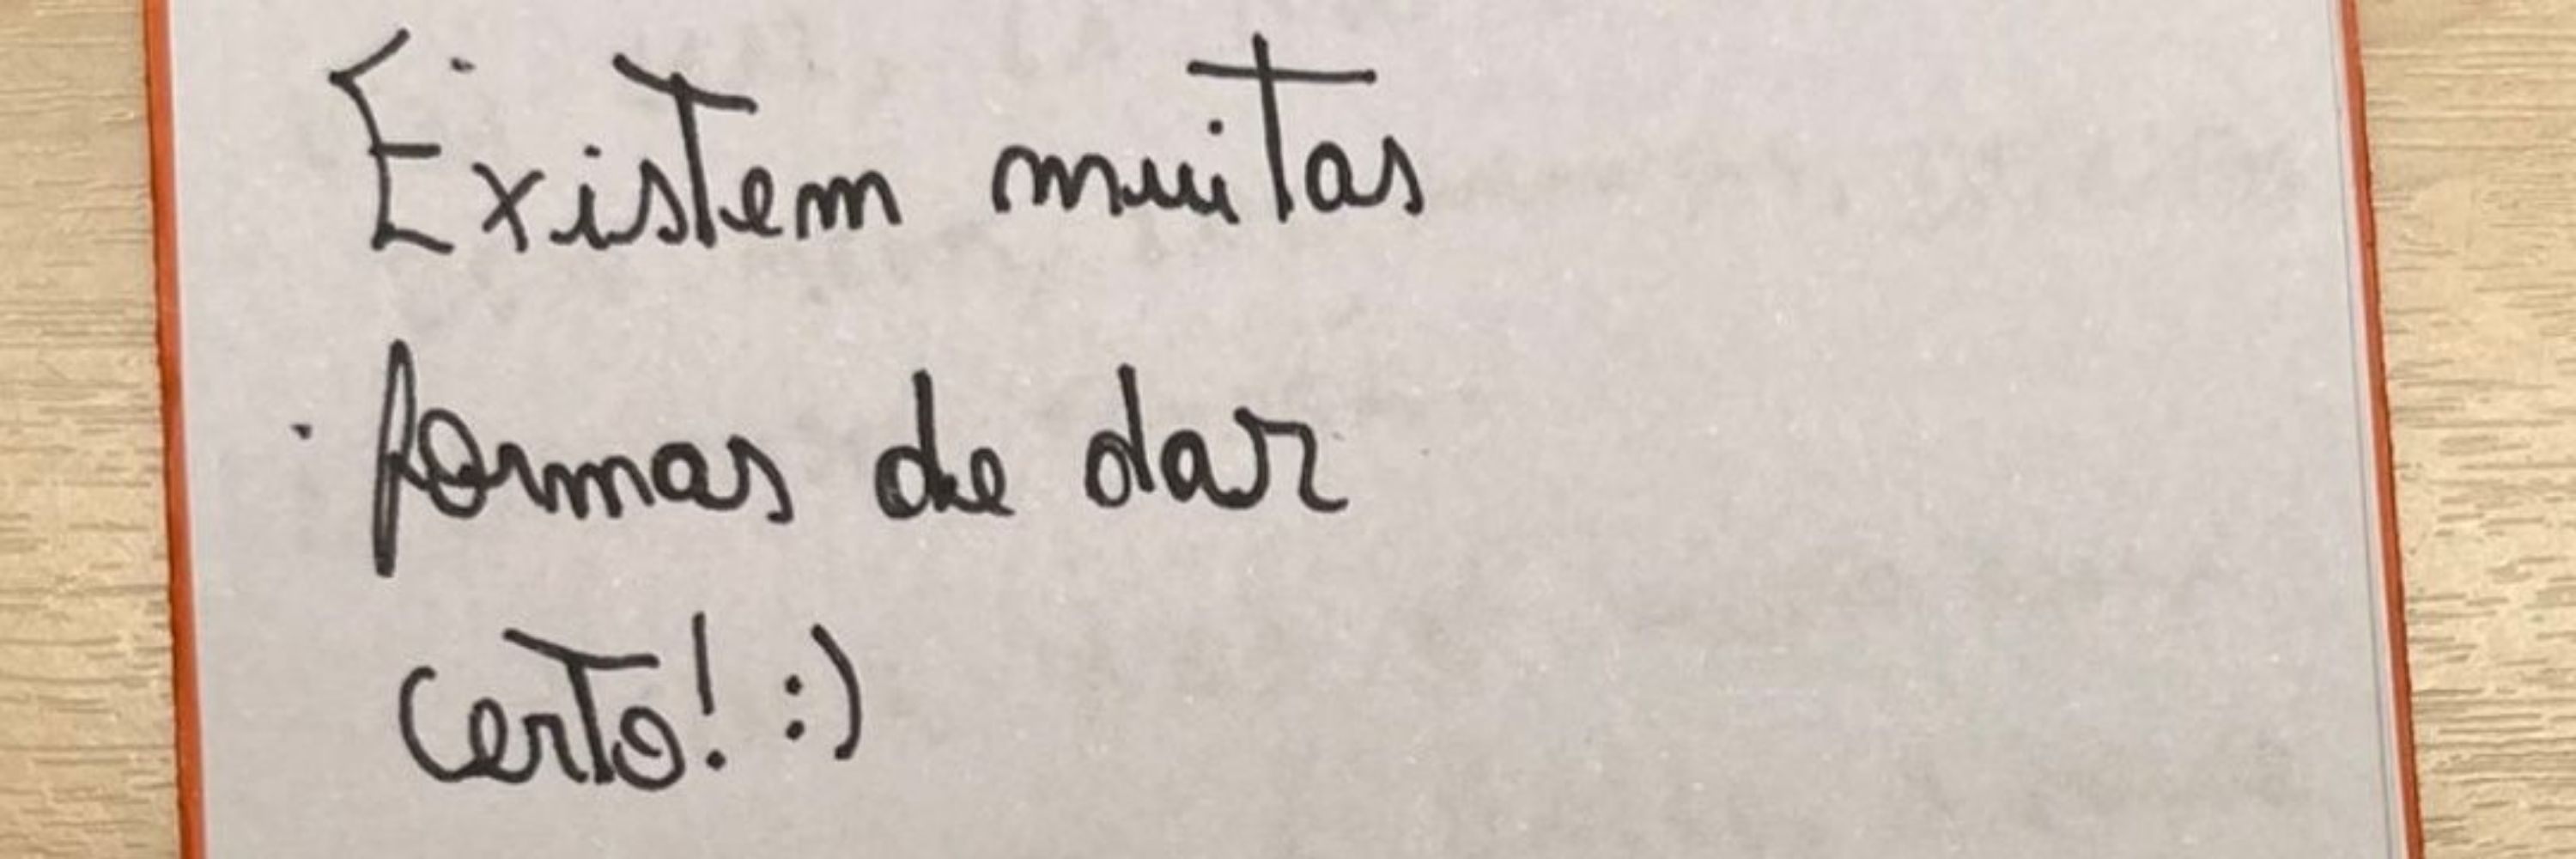 Existem muitas
formas de dar
certo! :)